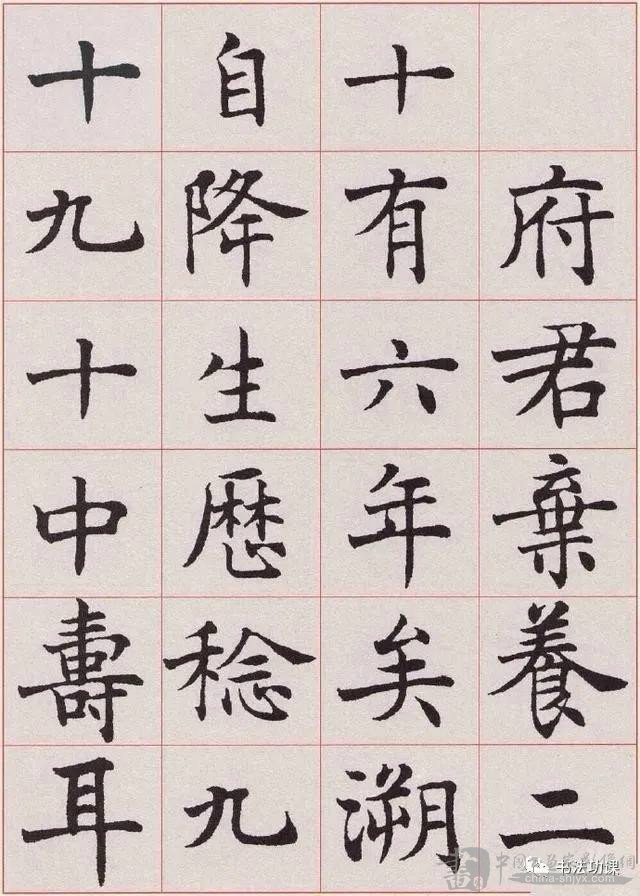 府君棄養二
十有六年矣溯
自降生歷稔九
十九十中壽耳
中国书画家影像网
china-shjyx.com
书法功课